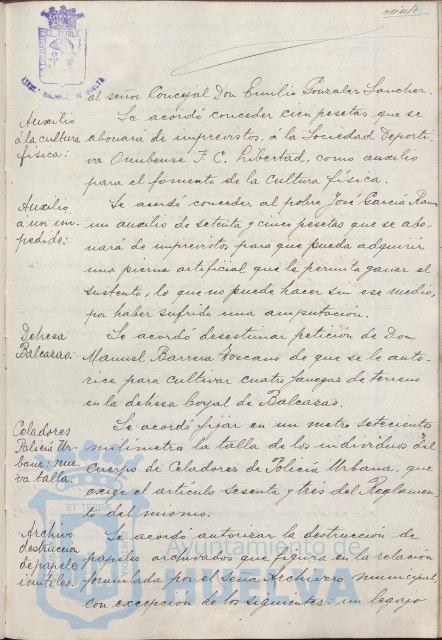 veinte
al señor Concejal Don Emilio Gonzalez Sanchez.
Auxilio
á la cultura
física:
Se acordó conceder cien pesetas que se
abonará de imprevistos, á la Sociedad Deporti-
va Onubense F. C. Libertad, como auxilio
para el fomento de la cultura física.
Auxilio
a un im-
pedido:
Se acordó conceder al pobre José García
un auxilio de setenta y cinco pesetas que se abo-
nará de imprevistos para que pueda adquirir
una pierna artificial que le permita ganar el
sustento, lo que no puede hacer sin ese medio,
por haber sufrido una amputación.
Dehesa
Balcazao:
Se acordó desestimar petición de Don
Manuel Barrera Toscano de que se le auto-
rice para cultivar cuatro fanegas de terreno
en la dehesa boyal de Balcazao.
Celadores
Policía Ur-
bana: nue-
va talla.
Se acordó fijar en un metro setecientos
milímetros la talla de los individuos del
Cuerpo de Celadores de Policía Urbana, que
exige el artículo sesenta y tres del Reglamen-
to del mismo.
Archivo
destruccion
de papeles
inutiles.
Se acordó autorizar la destrucción de
papeles archivados que figura en la relación
formulada por el señor Archivero municipal,
con excepcion de los siguientes: un legajo
Ayuntamiento de
HUELVA